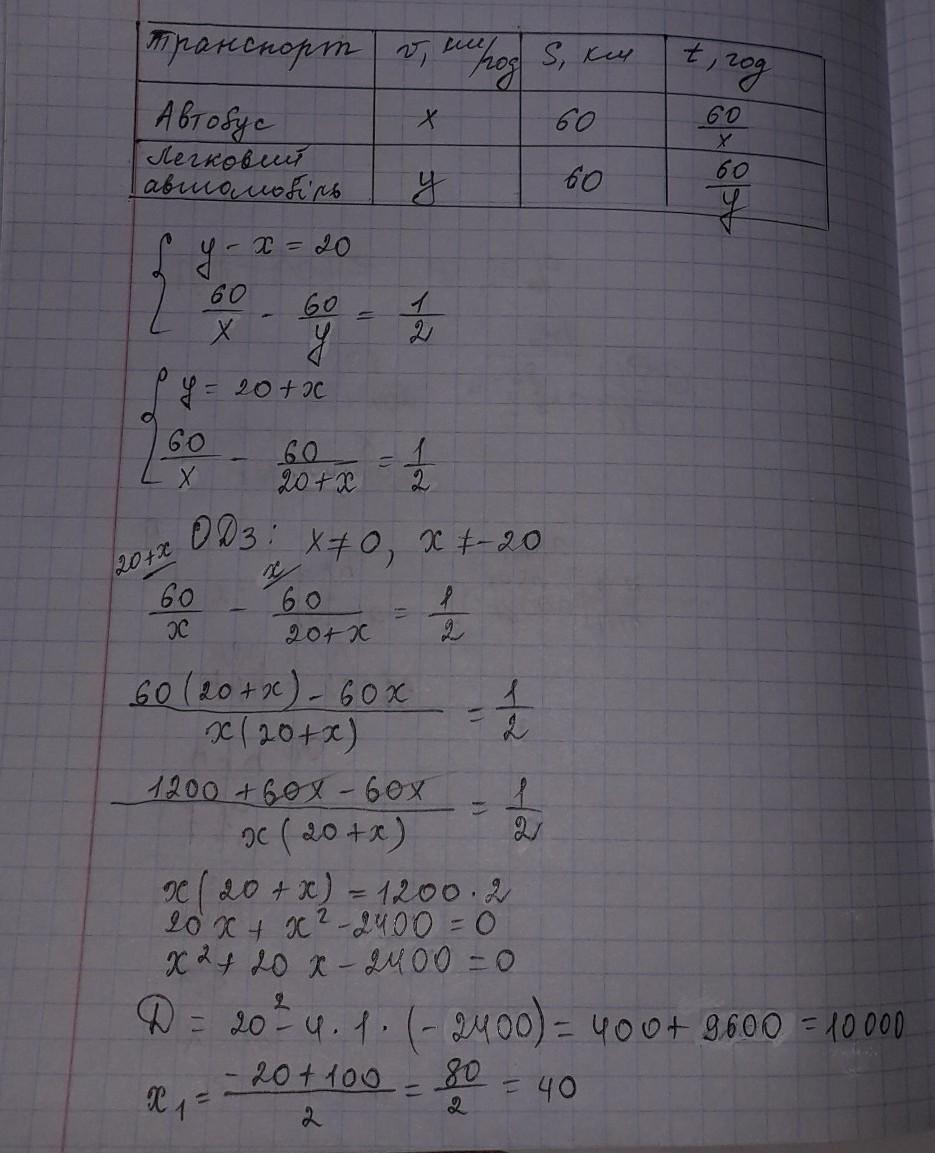 Транспорт v, км/год S, км t, год
Автобус x 60 60/x
Легковий автомобіль y 60 60/y
{ y - x = 20
60/x - 60/y = 1/2
{ y = 20 + x
60/x - 60/(20+x) = 1/2
ОДЗ: x ≠ 0, x ≠ -20
20+x/ x/
60/x - 60/(20+x) = 1/2
(60(20+x) - 60x)/(x(20+x)) = 1/2
(1200 + 60x - 60x)/(x(20+x)) = 1/2
x(20+x) = 1200·2
20x + x² - 2400 = 0
x² + 20x - 2400 = 0
D = 20² - 4·1·(-2400) = 400 + 9600 = 10000
x₁ = (-20+100)/2 = 80/2 = 40